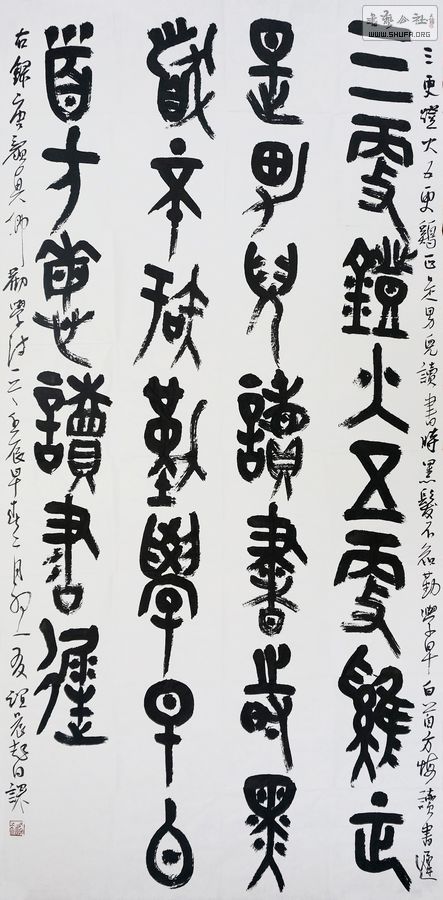 書藝公社
WWW.SHUFA.ORG
三更燈火五更鷄正是男兒讀書時黑髮不知勤學早白首方悔讀書遲
三更鐙火五更雞正
是男兒讀書時黑
髮不知勤學早白
首方悔讀書遲
右錄唐顏真卿勸學詩一壬辰早春二月初一友誼晨起日課